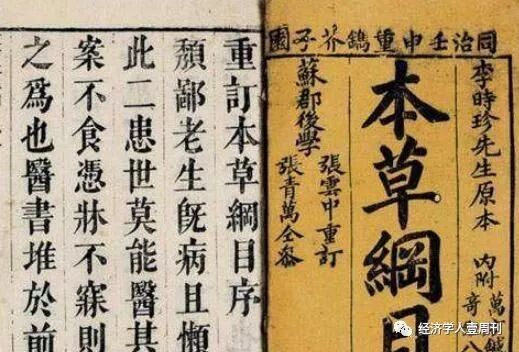 同治壬申重鐫芥子園
李時珍先生原本
內附
萬
奇
本草綱目
蘇郡後學
張雲中重訂
張青萬仝參
重訂本草綱目序
頹鄙老生旣病且懶
此二患世莫能醫其
案不食憑牀不寐則
之爲也醫書堆於前
经济学人壹周刊